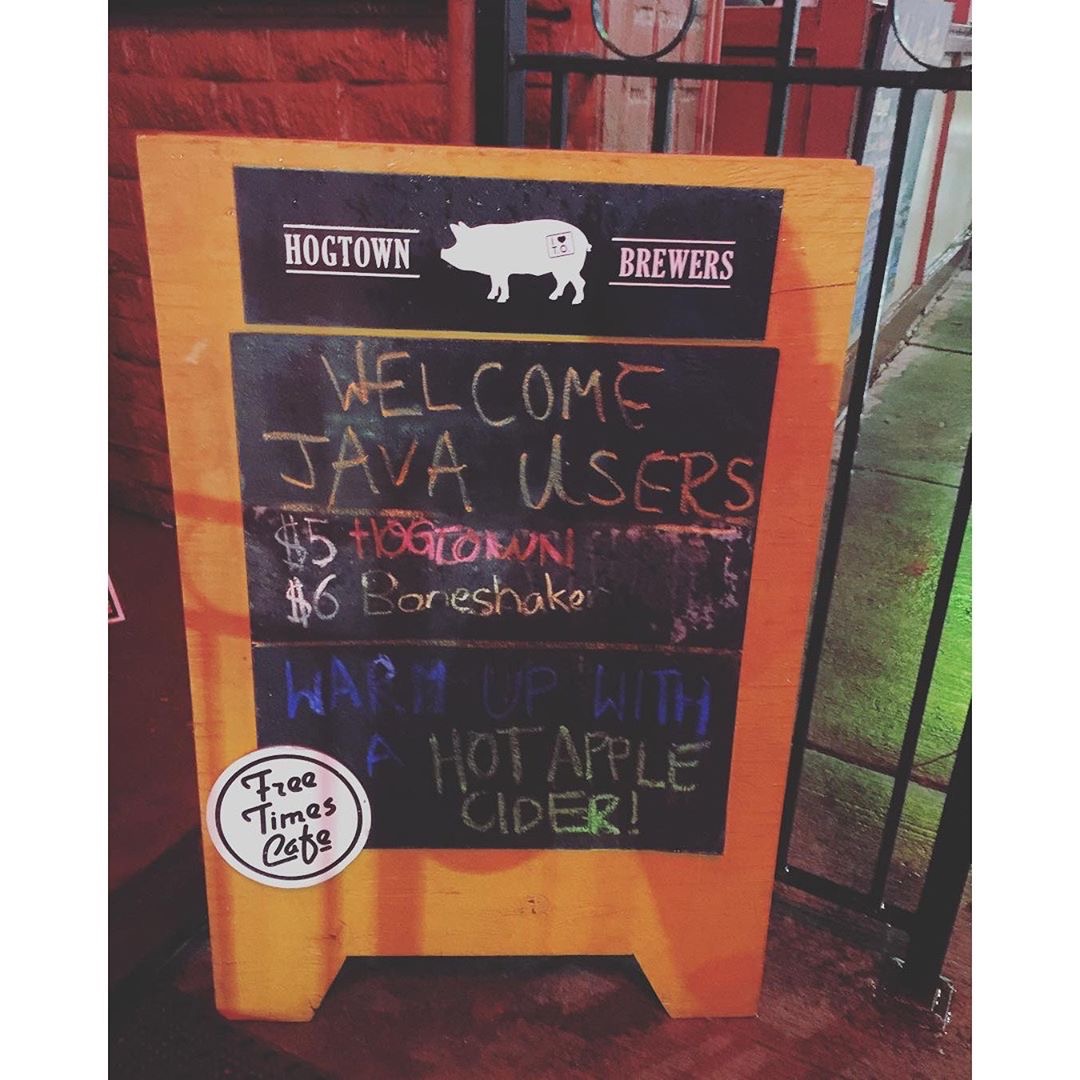 HOGTOWN
I ♥
T.O.
BREWERS
WELCOME
JAVA USERS
$5 HOGTOWN
$6 Boneshaker
WARM UP WITH
A HOT APPLE
CIDER!
Free
Times
Cafe